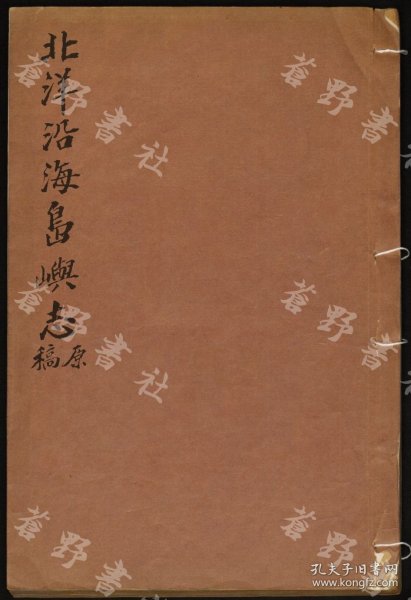 北洋沿海島嶼志
原稿
蒼野書社
蒼野書社
蒼野書社
蒼野書社
蒼野書社
蒼野書社
孔夫子旧书网
www.kongfz.com